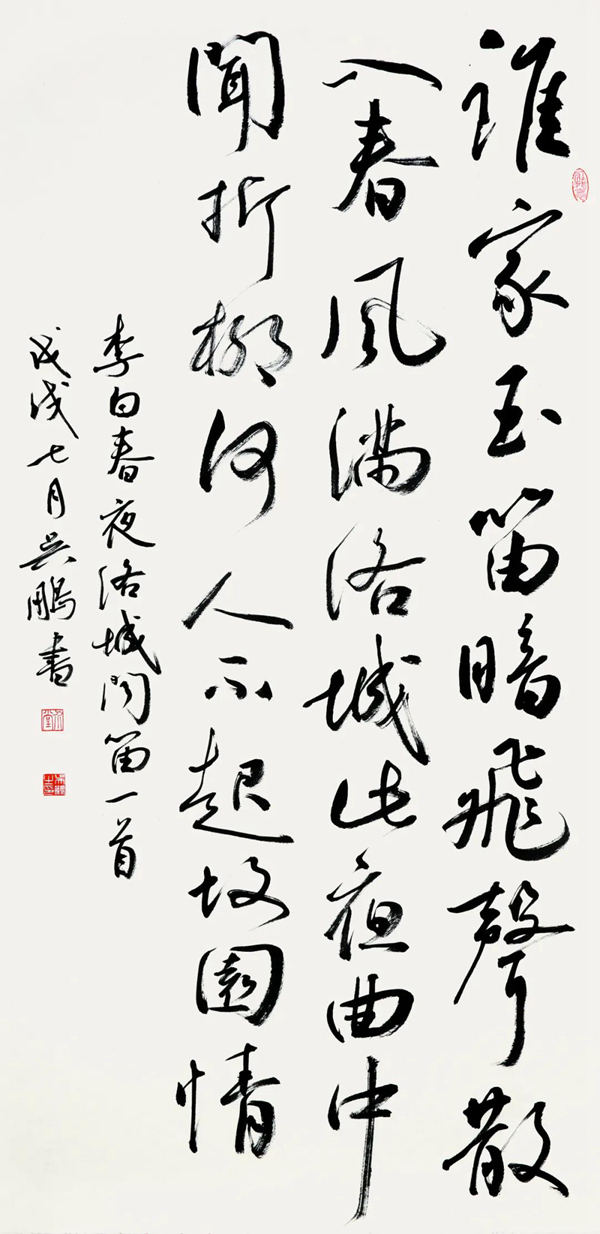 誰家玉笛暗飛聲散
入春風滿洛城此夜曲中
聞折柳何人不起故園情
李白春夜洛城聞笛一首
戊戌七月吳鵬書